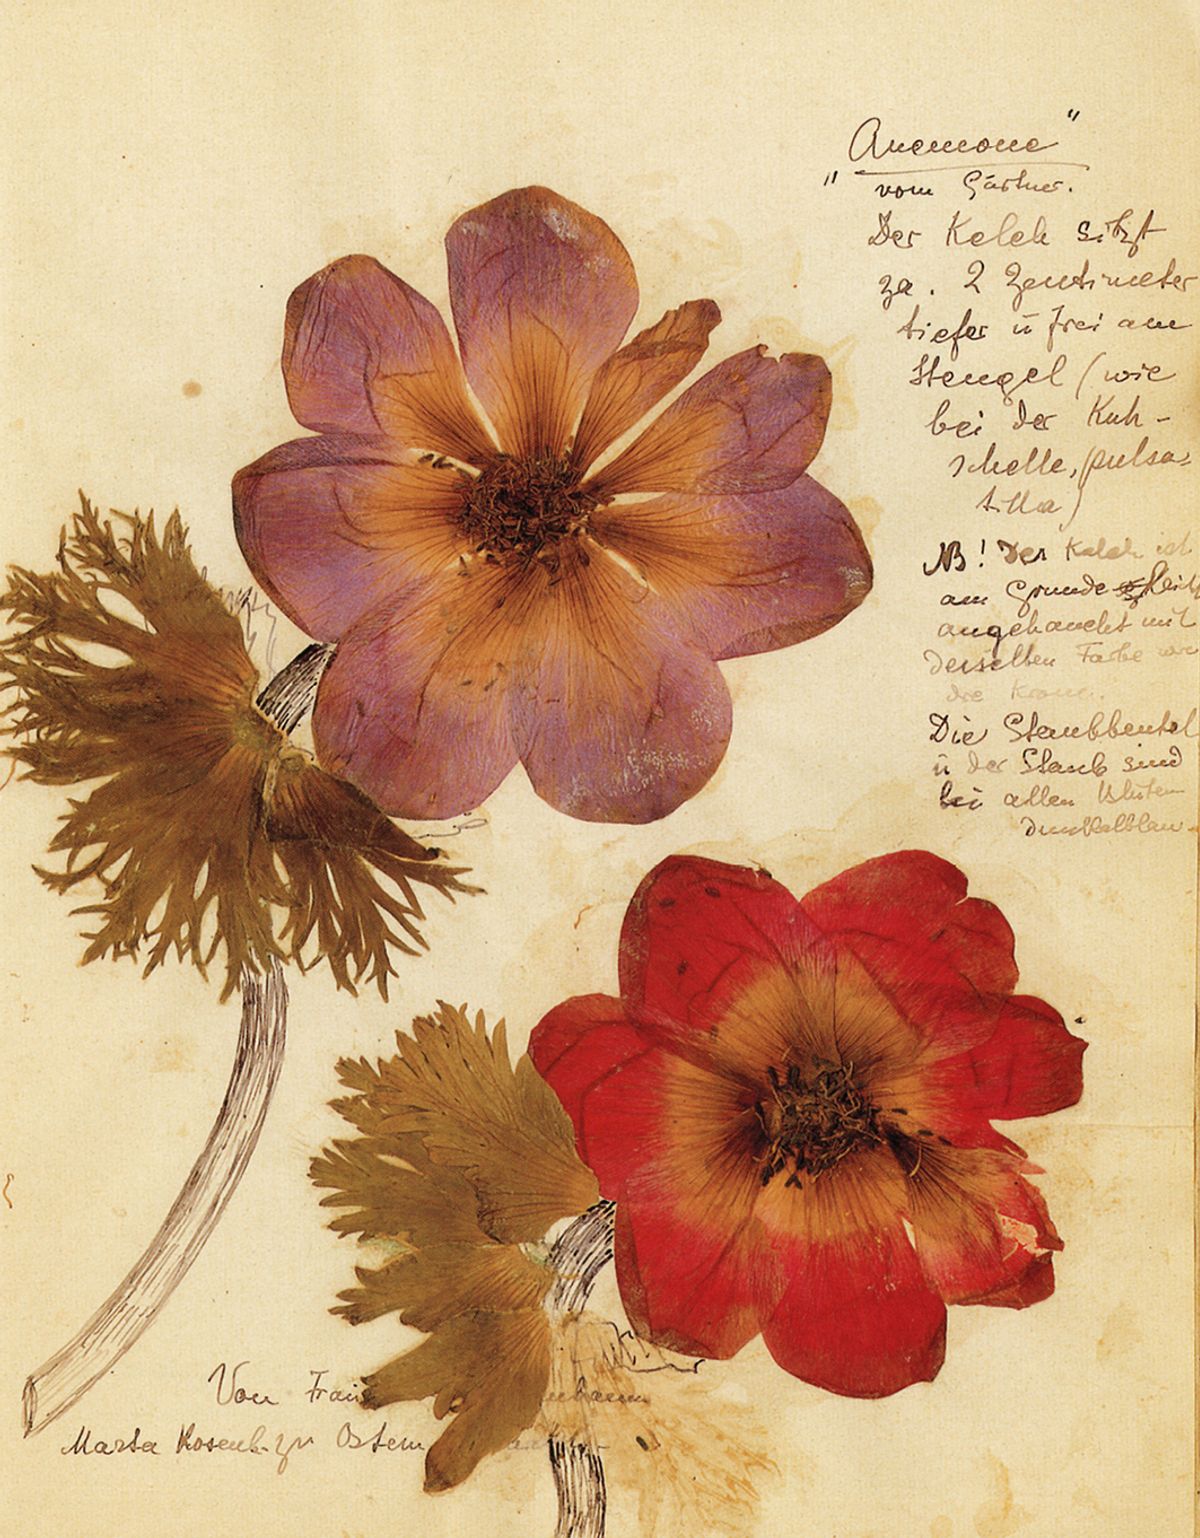 "Anemone"
vom Gärtner.
Der Kelch sitzt
za. 2 Zentimeter
tiefer ü frei am
Stengel (wie
bei der Kuh-
schelle, pulsa-
tilla)
NB! Der Kelch ist
am Grunde
angehaucht mit
derselben Farbe wie
die Krone.
Die Staubbeutel
ü der Staub sind
bei allen Blüten
dunkelblau.
Von Frau
Marta Rosenb. zu Ostern